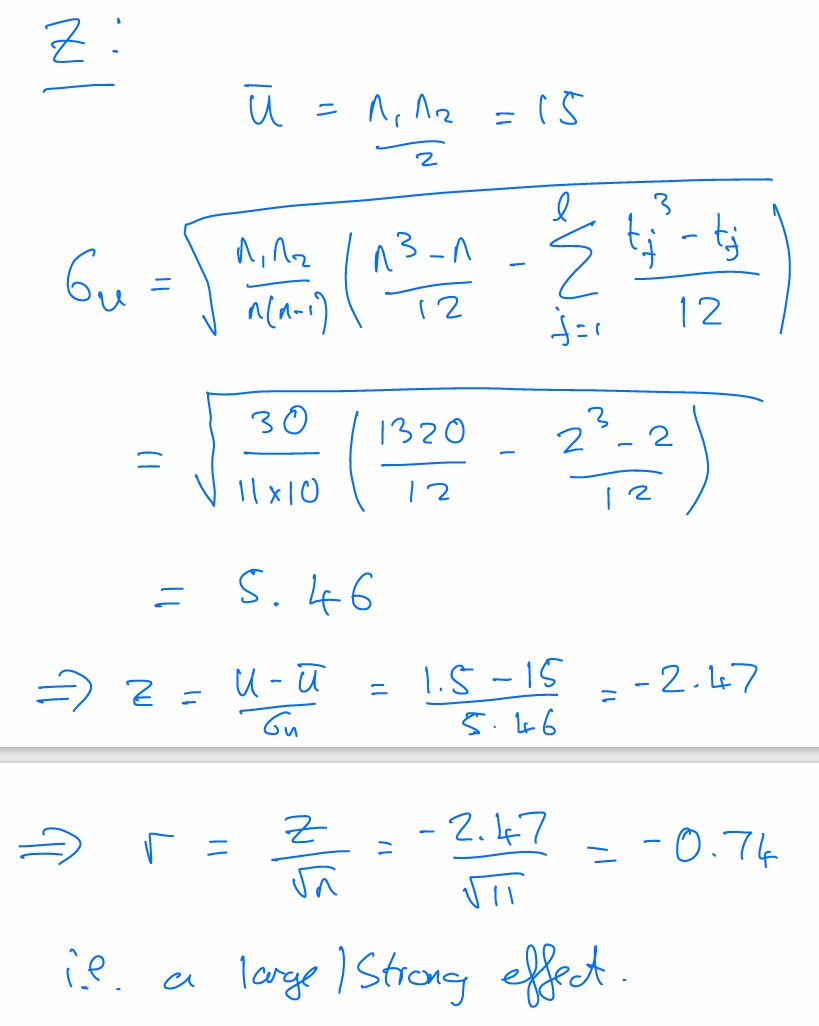 Z:
ū = n₁n₂/2 = 15
σᵤ = √( n₁n₂/n(n-1) ( (n³-n)/12 - Σ_{j=1}^{l} (tⱼ³ - tⱼ)/12 ) )
= √( 30/(11×10) ( 1320/12 - (2³-2)/12 ) )
= 5.46
⇒ z = (u-ū)/σᵤ = (1.5-15)/5.46 = -2.47
⇒ r = z/√n = -2.47/√11 = -0.74
i.e. a large/strong effect.